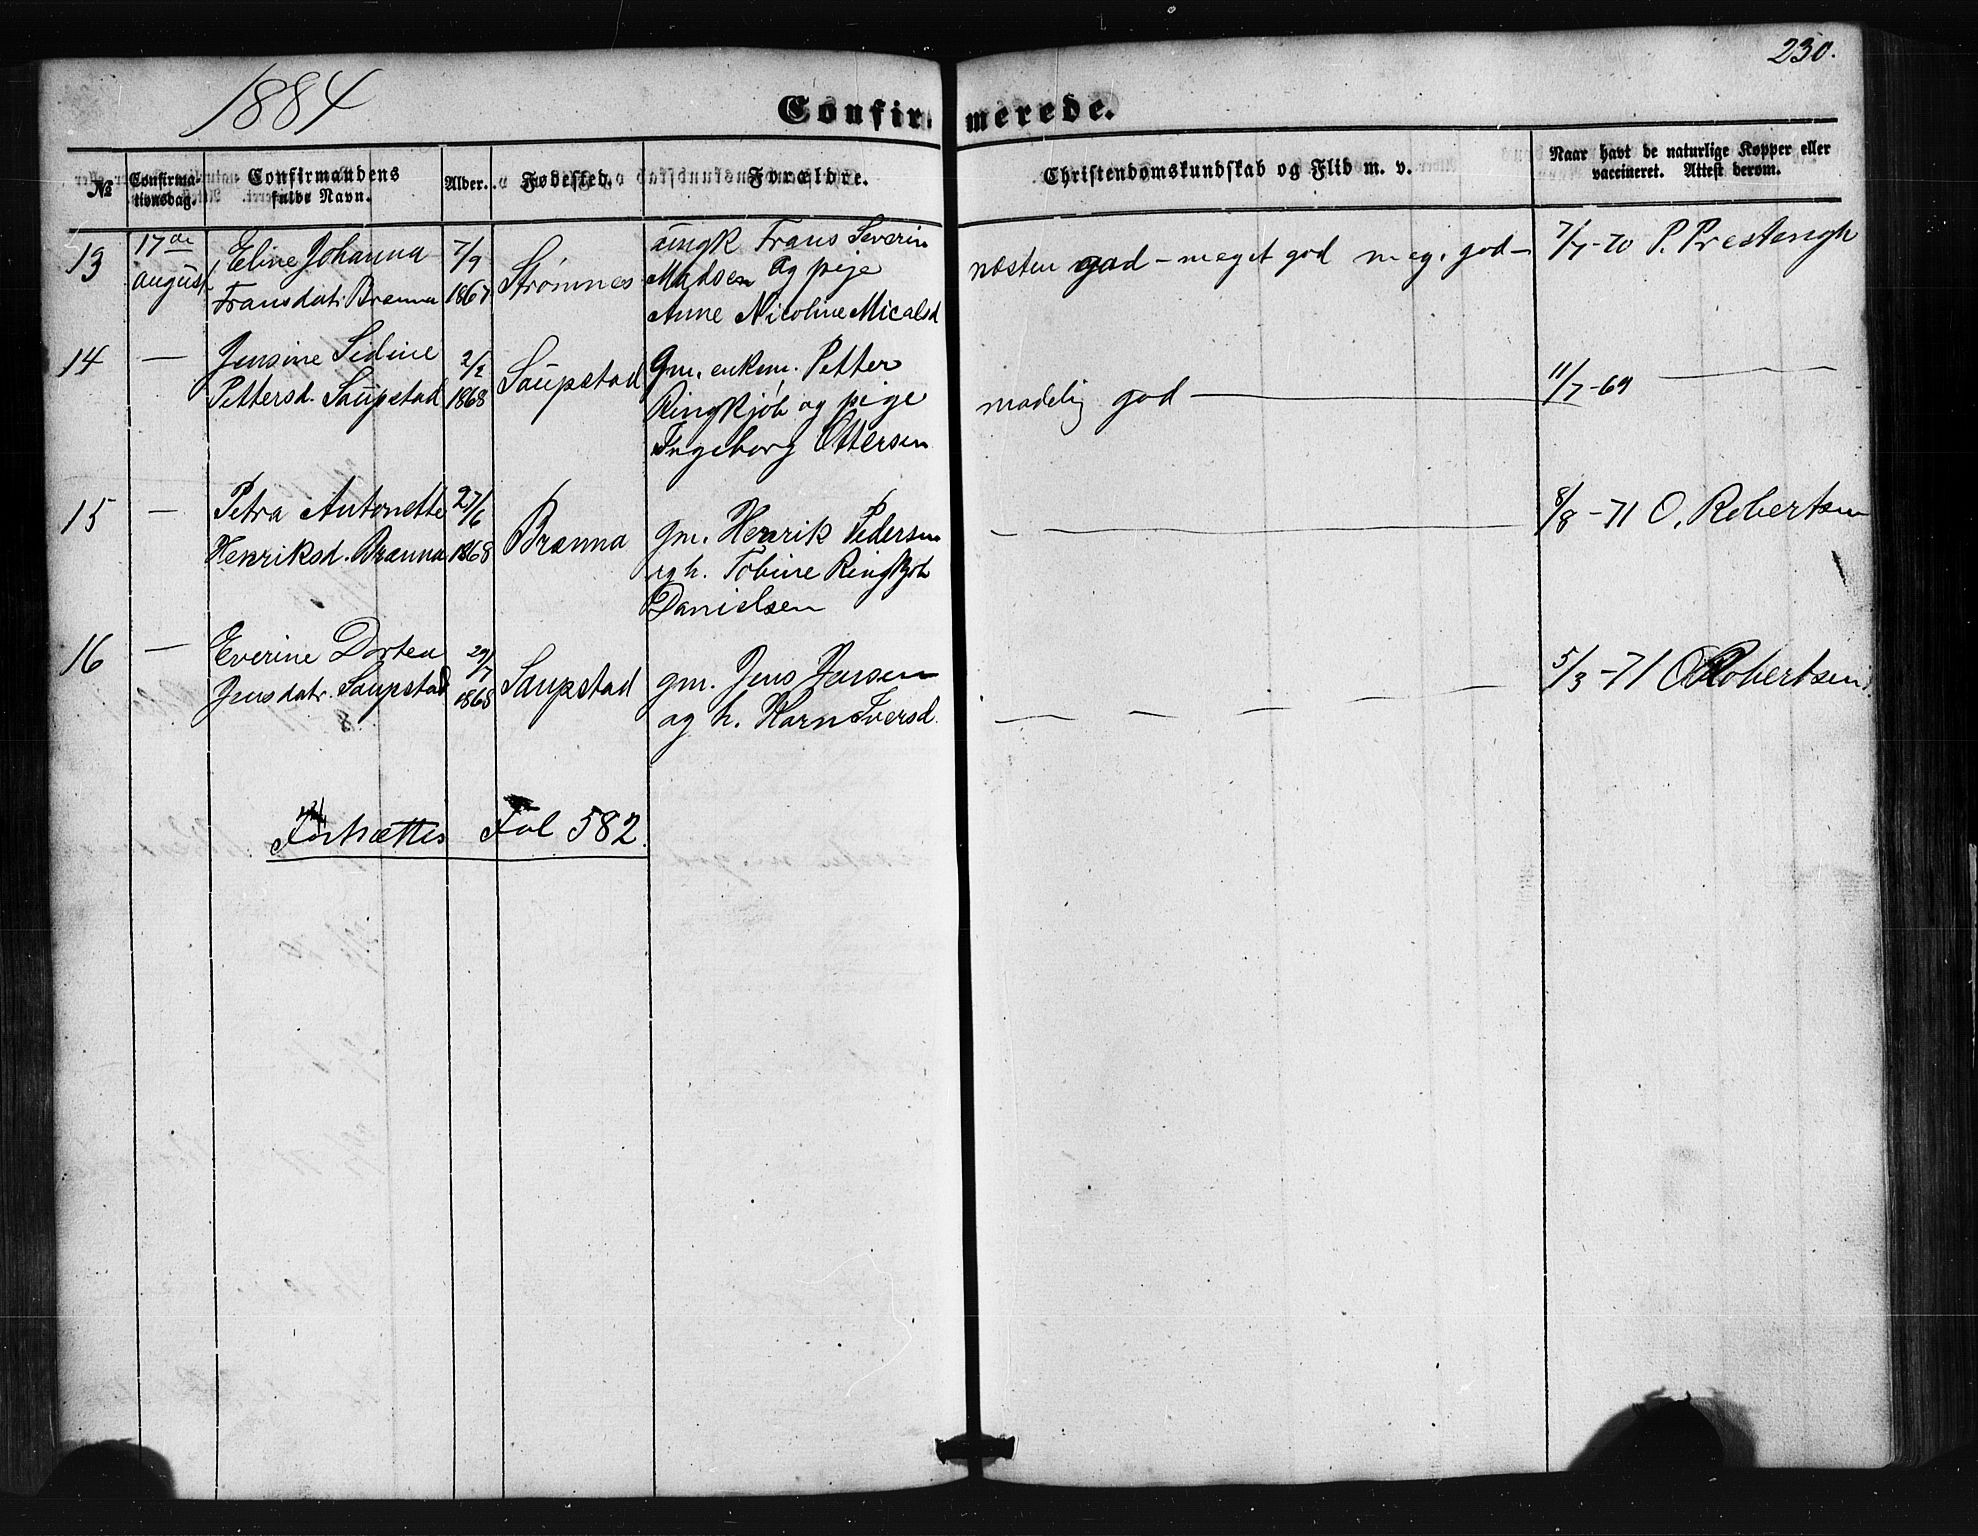 230.
1884
Confirmerede.
№
Confirmationsdag.
Confirmandens fulde Navn.
Alder.
Fødested.
Forældre.
Christendomskundskab og Flid m. v.
Naar havt de naturlige Kopper eller vaccineret. Attest derom.
13
17de august
Eline Johanna
Fransdatr. Brænna
7/9 1867
Strømnes
ungk Frans Severin
Madsen og pige
Anne Nicoline Micalsd
næsten god – meget god meg. god –
7/7 -70 P. Prestengh
14
—
Jensine Sidine
Pettersd. Saupstad
2/2 1868
Saupstad
gm. enkem. Petter
Ringkjøb og pige
Ingeborg Ottersen
madelig god —
11/7 -69 —
15
—
Petra Antonette
Henriksd. Brænna
27/6 1868
Brænna
gm. Henrik Pedersen
og h. Tobine Ringkjøb
Danielsen
—
8/8 -71 O. Robertsen
16
—
Everine Dortea
Jensdatr. Saupstad
29/7 1868
Saupstad
gm. Jens Jensen
og h. Harn Iversd.
— — — — —
5/3 -71 O Robertsen
Fortsættes Fol 582.